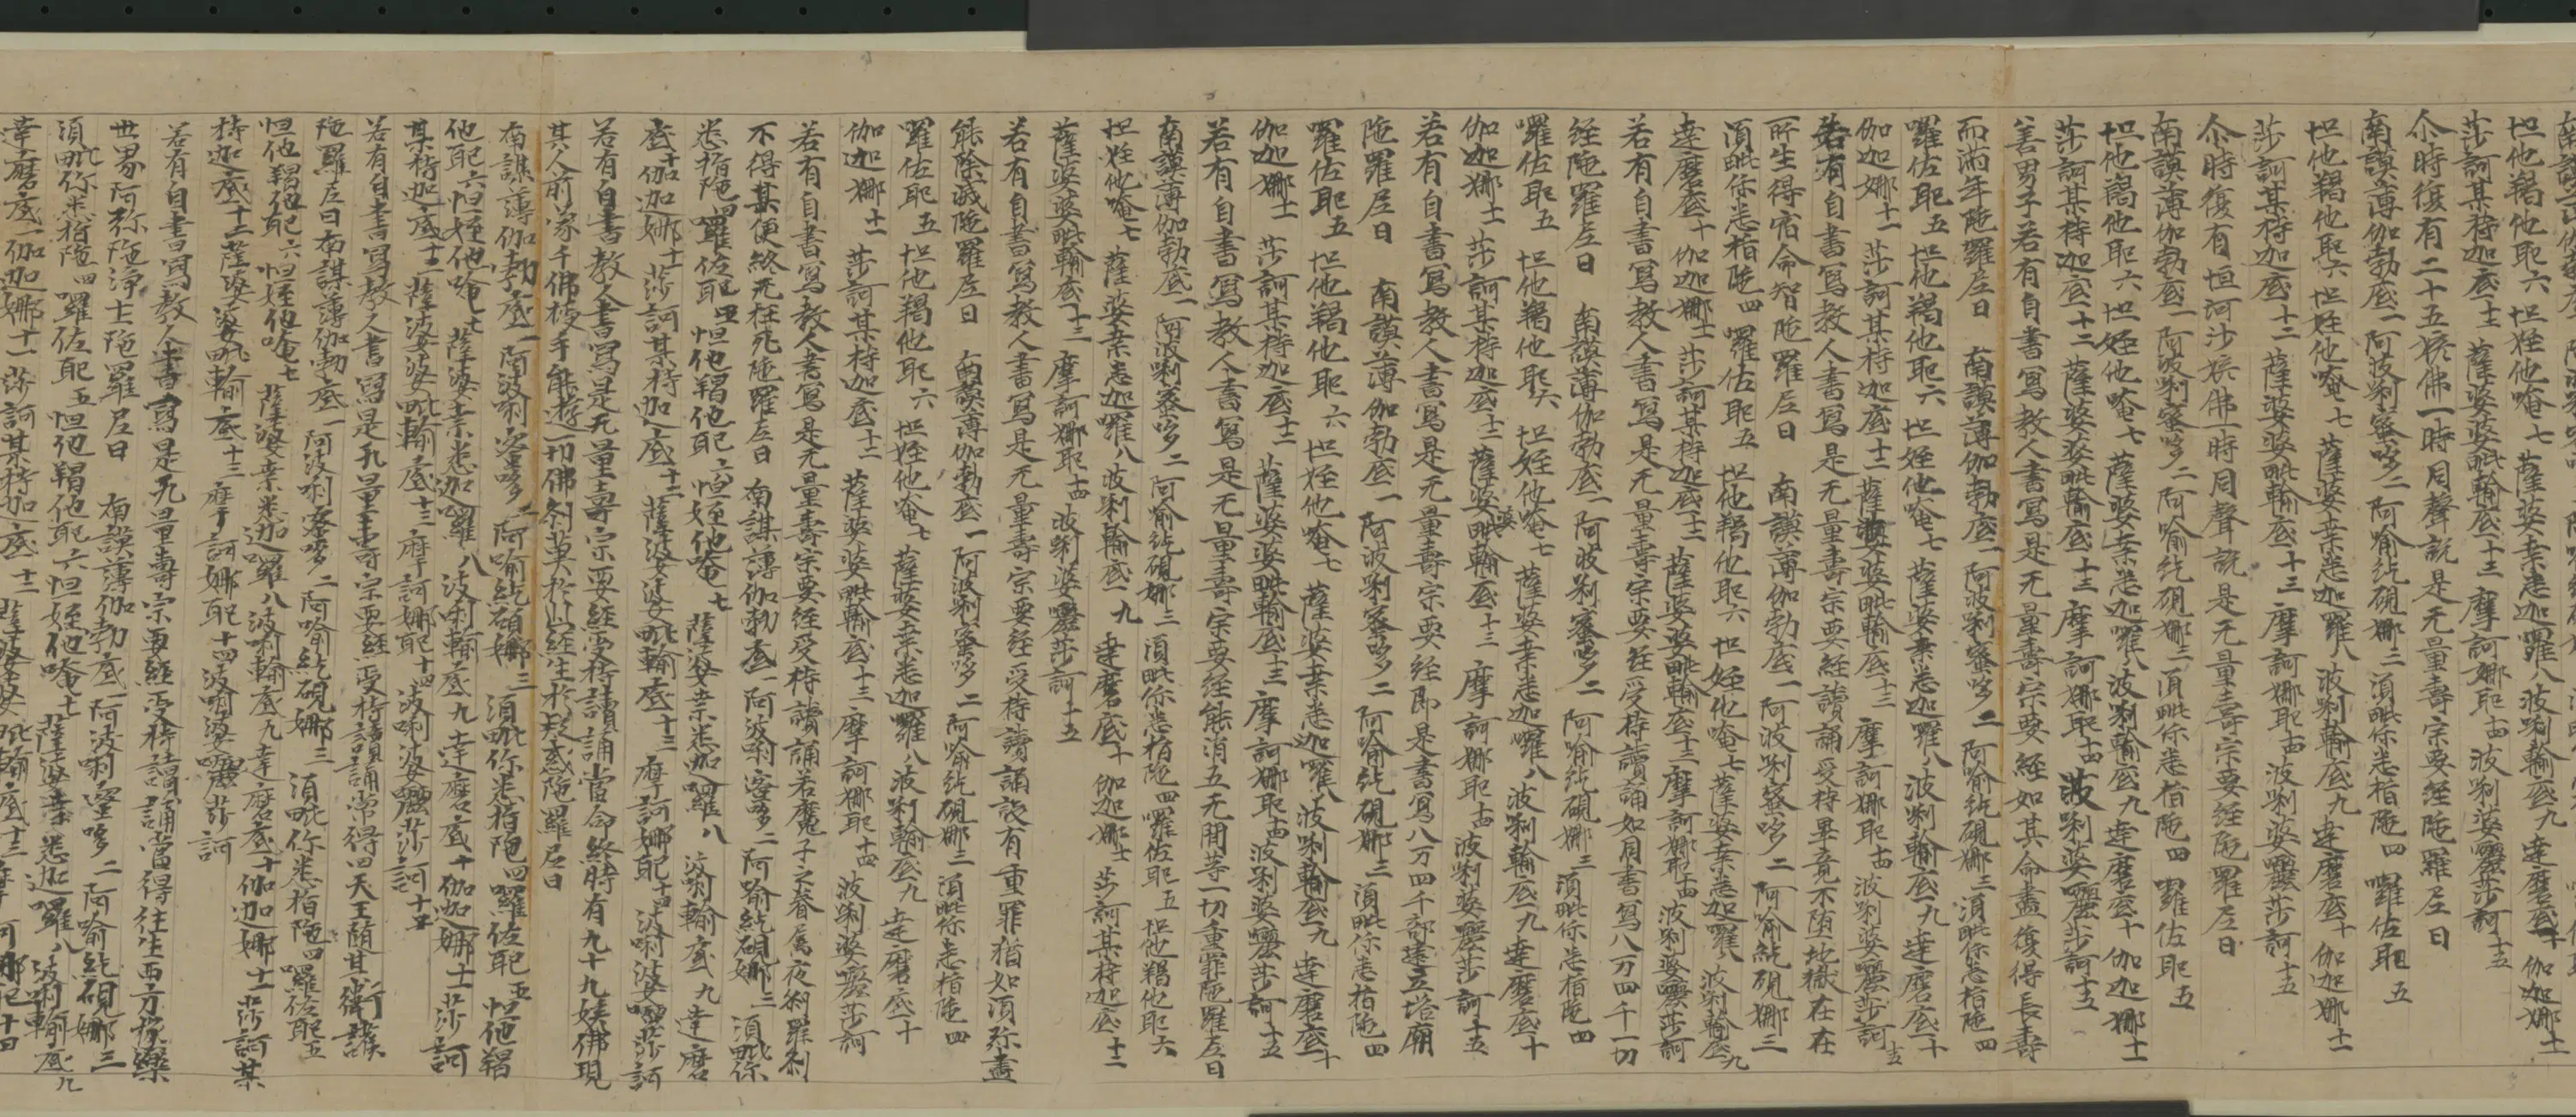 怛他羯他耶六 怛姪他唵七 薩婆桒悉迦羅八 波唎輸底九 達磨底十 伽迦娜十一
莎訶某持迦底十二 薩婆婆毗輸底十三 摩訶娜耶十四 波唎婆𠼝莎訶十五
尒時復有二十五姟佛一時同聲說是无量壽宗要經陁羅尼曰
南謨薄伽勃底一 阿波唎蜜哆二 阿喻紇硯娜三 須毗你悉指陁四 囉佐耶五
怛他羯他耶六 怛姪他唵七 薩婆桒悉迦羅八 波唎輸底九 達磨底十 伽迦娜十一
莎訶某持迦底十二 薩婆婆毗輸底十三 摩訶娜耶十四 波唎婆𠼝莎訶十五
尒時復有恒河沙姟佛一時同聲說是无量壽宗要經陁羅尼曰
南謨薄伽勃底一 阿波唎蜜哆二 阿喻紇硯娜三 須毗你悉指陁四 囉佐耶五
怛他羯他耶六 怛姪他唵七 薩婆桒悉迦囉八 波唎輸底九 達磨底十 伽迦娜十一
莎訶某持迦底十二 薩婆婆毗輸底十三 摩訶娜耶十四 波唎婆𠼝莎訶十五
善男子若有自書寫教人書寫是无量壽宗要經如其命盡復得長壽
而滿年陁羅尼曰 南謨薄伽勃底一 阿波唎蜜哆二 阿喻紇硯娜三 須毗你悉指陁四
囉佐耶五 怛他羯他耶六 怛姪他唵七 薩婆桒悉迦羅八 波唎輸底九 達磨底十
伽迦娜十一 莎訶某持迦底十二 薩婆婆毗輸底十三 摩訶娜耶十四 波唎婆𠼝莎訶十五
若有自書寫教人書寫是无量壽宗要經讀誦受持畢竟不墮地獄在在
所生得宿命智陁羅尼曰 南謨薄伽勃底一 阿波唎蜜哆二 阿喻紇硯娜三
須毗你悉指陁四 囉佐耶五 怛他羯他耶六 怛姪他唵七 薩婆桒悉迦羅八 波唎輸底九
達磨底十 伽迦娜十一 莎訶某持迦底十二 薩婆婆毗輸底十三 摩訶娜耶十四 波唎婆𠼝莎訶
若有自書寫教人書寫是无量壽宗要經受持讀誦如同書寫八万四千一切
經陁羅尼曰 南謨薄伽勃底一 阿波唎蜜哆二 阿喻紇硯娜三 須毗你悉指陁四
囉佐耶五 怛他羯他耶六 怛姪他唵七 薩婆桒悉迦囉八 波唎輸底九 達磨底十
伽迦娜十一 莎訶某持迦底十二 薩婆婆毗輸底十三 摩訶娜耶十四 波唎婆𠼝莎訶十五
若有自書寫教人書寫是无量壽宗要經即是書寫八万四千部建立塔廟
陁羅尼曰 南謨薄伽勃底一 阿波唎蜜哆二 阿喻紇硯娜三 須毗你悉指陁四
囉佐耶五 怛他羯他耶六 怛姪他唵七 薩婆桒悉迦囉八 波唎輸底九 達磨底十
伽迦娜十一 莎訶某持迦底十二 薩婆婆毗輸底十三 摩訶娜耶十四 波唎婆𠼝莎訶十五
若有自書寫教人書寫是无量壽宗要經能消五无間等一切重罪陁羅尼曰
南謨薄伽勃底一 阿波唎蜜哆二 阿喻紇硯娜三 須毗你悉指陁四 囉佐耶五 怛他羯他耶六
怛姪他唵七 薩婆桒悉迦囉八 波唎輸底九 達磨底十 伽迦娜十一 莎訶某持迦底十二
薩婆婆毗輸底十三 摩訶娜耶十四 波唎婆𠼝莎訶十五
若有自書寫教人書寫是无量壽宗要經受持讀誦設有重罪猶如須弥盡
能除滅陁羅尼曰 南謨薄伽勃底一 阿波唎蜜哆二 阿喻紇硯娜三 須毗你悉指陁四
囉佐耶五 怛他羯他耶六 怛姪他唵七 薩婆桒悉迦囉八 波唎輸底九 達磨底十
伽迦娜十一 莎訶某持迦底十二 薩婆婆毗輸底十三 摩訶娜耶十四 波唎婆𠼝莎訶
若有自書寫教人書寫是无量壽宗要經受持讀誦若魔子之眷屬夜叉羅刹
不得其便終无枉死陁羅尼曰 南謨薄伽勃底一 阿波唎蜜哆二 阿喻紇硯娜三 須毗你
悉指陁四 囉佐耶五 怛他羯他耶六 怛姪他唵七 薩婆桒悉迦囉八 波唎輸底九 達磨
底十 伽迦娜十一 莎訶某持迦底十二 薩婆婆毗輸底十三 摩訶娜耶十四 波唎婆𠼝莎訶
若有自書教人書寫是无量壽宗要經受持讀誦當命終時有九十九姟佛現
其人前來千佛授手能遊一切佛刹莫於此經生於疑惑陁羅尼曰
南謨薄伽勃底一 阿波唎蜜哆二 阿喻紇硯娜三 須毗你悉指陁四 囉佐耶五 怛他羯
他耶六 怛姪他唵七 薩婆桒悉迦囉八 波唎輸底九 達磨底十 伽迦娜十一 莎訶
某持迦底十二 薩婆婆毗輸底十三 摩訶娜耶十四 波唎婆𠼝莎訶十五
若有自書寫教人書寫是无量壽宗要經受持讀誦常得四天王隨其衛護
陁羅尼曰 南謨薄伽勃底一 阿波唎蜜哆二 阿喻紇硯娜三 須毗你悉指陁四 囉佐耶五
怛他羯他耶六 怛姪他唵七 薩婆桒悉迦囉八 波唎輸底九 達磨底十 伽迦娜十一 莎訶某
持迦底十二 薩婆婆毗輸底十三 摩訶娜耶十四 波唎婆𠼝莎訶
若有自書寫教人書寫是无量壽宗要經受持讀誦當得往生西方極樂
世界阿弥陁淨土陁羅尼曰 南謨薄伽勃底一 阿波唎蜜哆二 阿喻紇硯娜三
須毗你悉指陁四 囉佐耶五 怛他羯他耶六 怛姪他唵七 薩婆桒悉迦囉八 波唎輸底九
達磨底 伽迦娜十一 莎訶某持迦底十二 薩婆婆毗輸底十三 摩訶娜耶十四